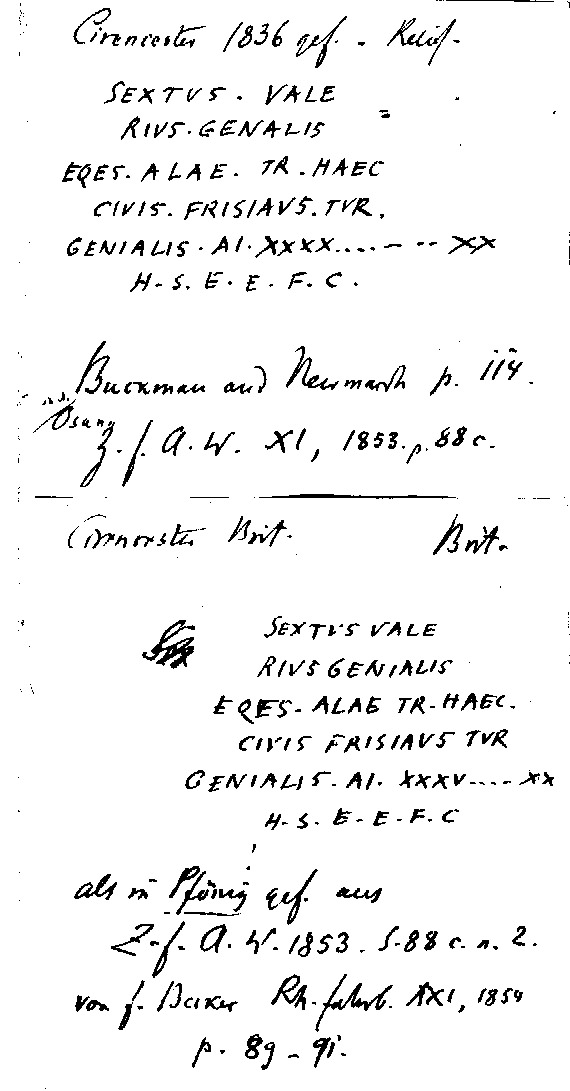 Cirencester 1836 gef. - Relief.
SEXTVS . VALE
RIVS . GENALIS
EQES . ALAE . TR . HAEC
CIVIS . FRISIAVS . TVR .
GENIALIS . AI . XXXX....- -- XX
H . S . E . E . F . C .
Buckman and Newmarsh p. 114.
Osann
Z. f. A. W. XI, 1853. p. 88 c.
Cirencester Brit. Brit.
SEXTVS VALE
RIVS GENIALIS
EQES - ALAE TR - HAEC.
CIVIS FRISIAVS TVR
GENIALIS . AI . XXXV....- XX
H - S . E - E - F . C
als in gef. aus
Z. f. A. W. 1853. S. 88 c. n. 2.
von J. Becker Rh. Jahrb. XXI, 1854
p. 89 - 91.